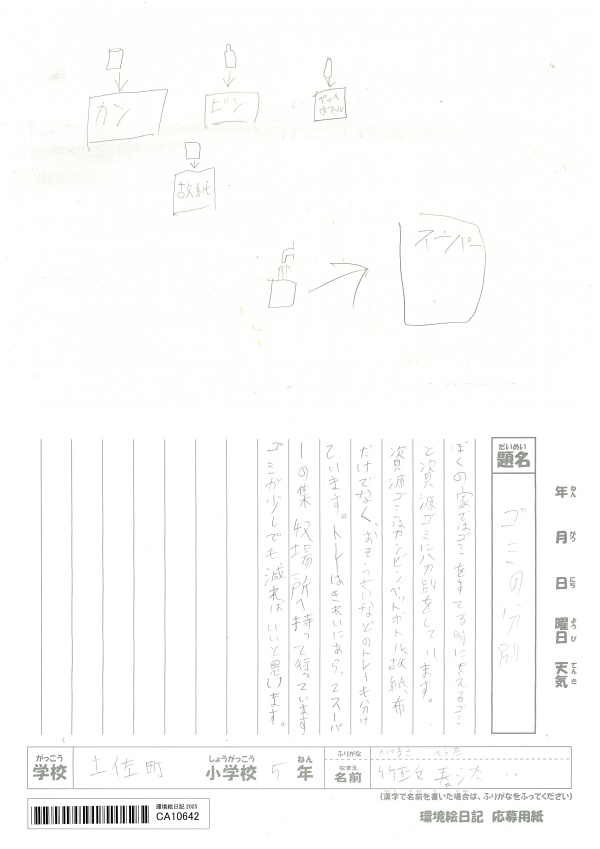 カン
ビン
ペット
ボトル
故紙
スーパー
ねん
年
がつ
月
にち
日
ようび
曜日
てんき
天気
だいめい
題名
ゴミの分別
ぼくの家ではゴミをすてる時にもえるゴミ
と資源ゴミに分別をしています。
資源ゴミはカン、ビン、ペットボトル、故紙、布
だけでなく、おそうざいなどのトレーも分け
ています。トレーはきれいにあらってスーパ
ーの集収場所へ持って行っています
ゴミが少しでも減ればいいと思います。
がっこう
学校
土佐町
しょうがっこう
小学校
5
ねん
年
ふりがな
なまえ
名前
(漢字で名前を書いた場合は、ふりがなをふってください)
環境絵日記 2025
CA10642
環境絵日記 応募用紙